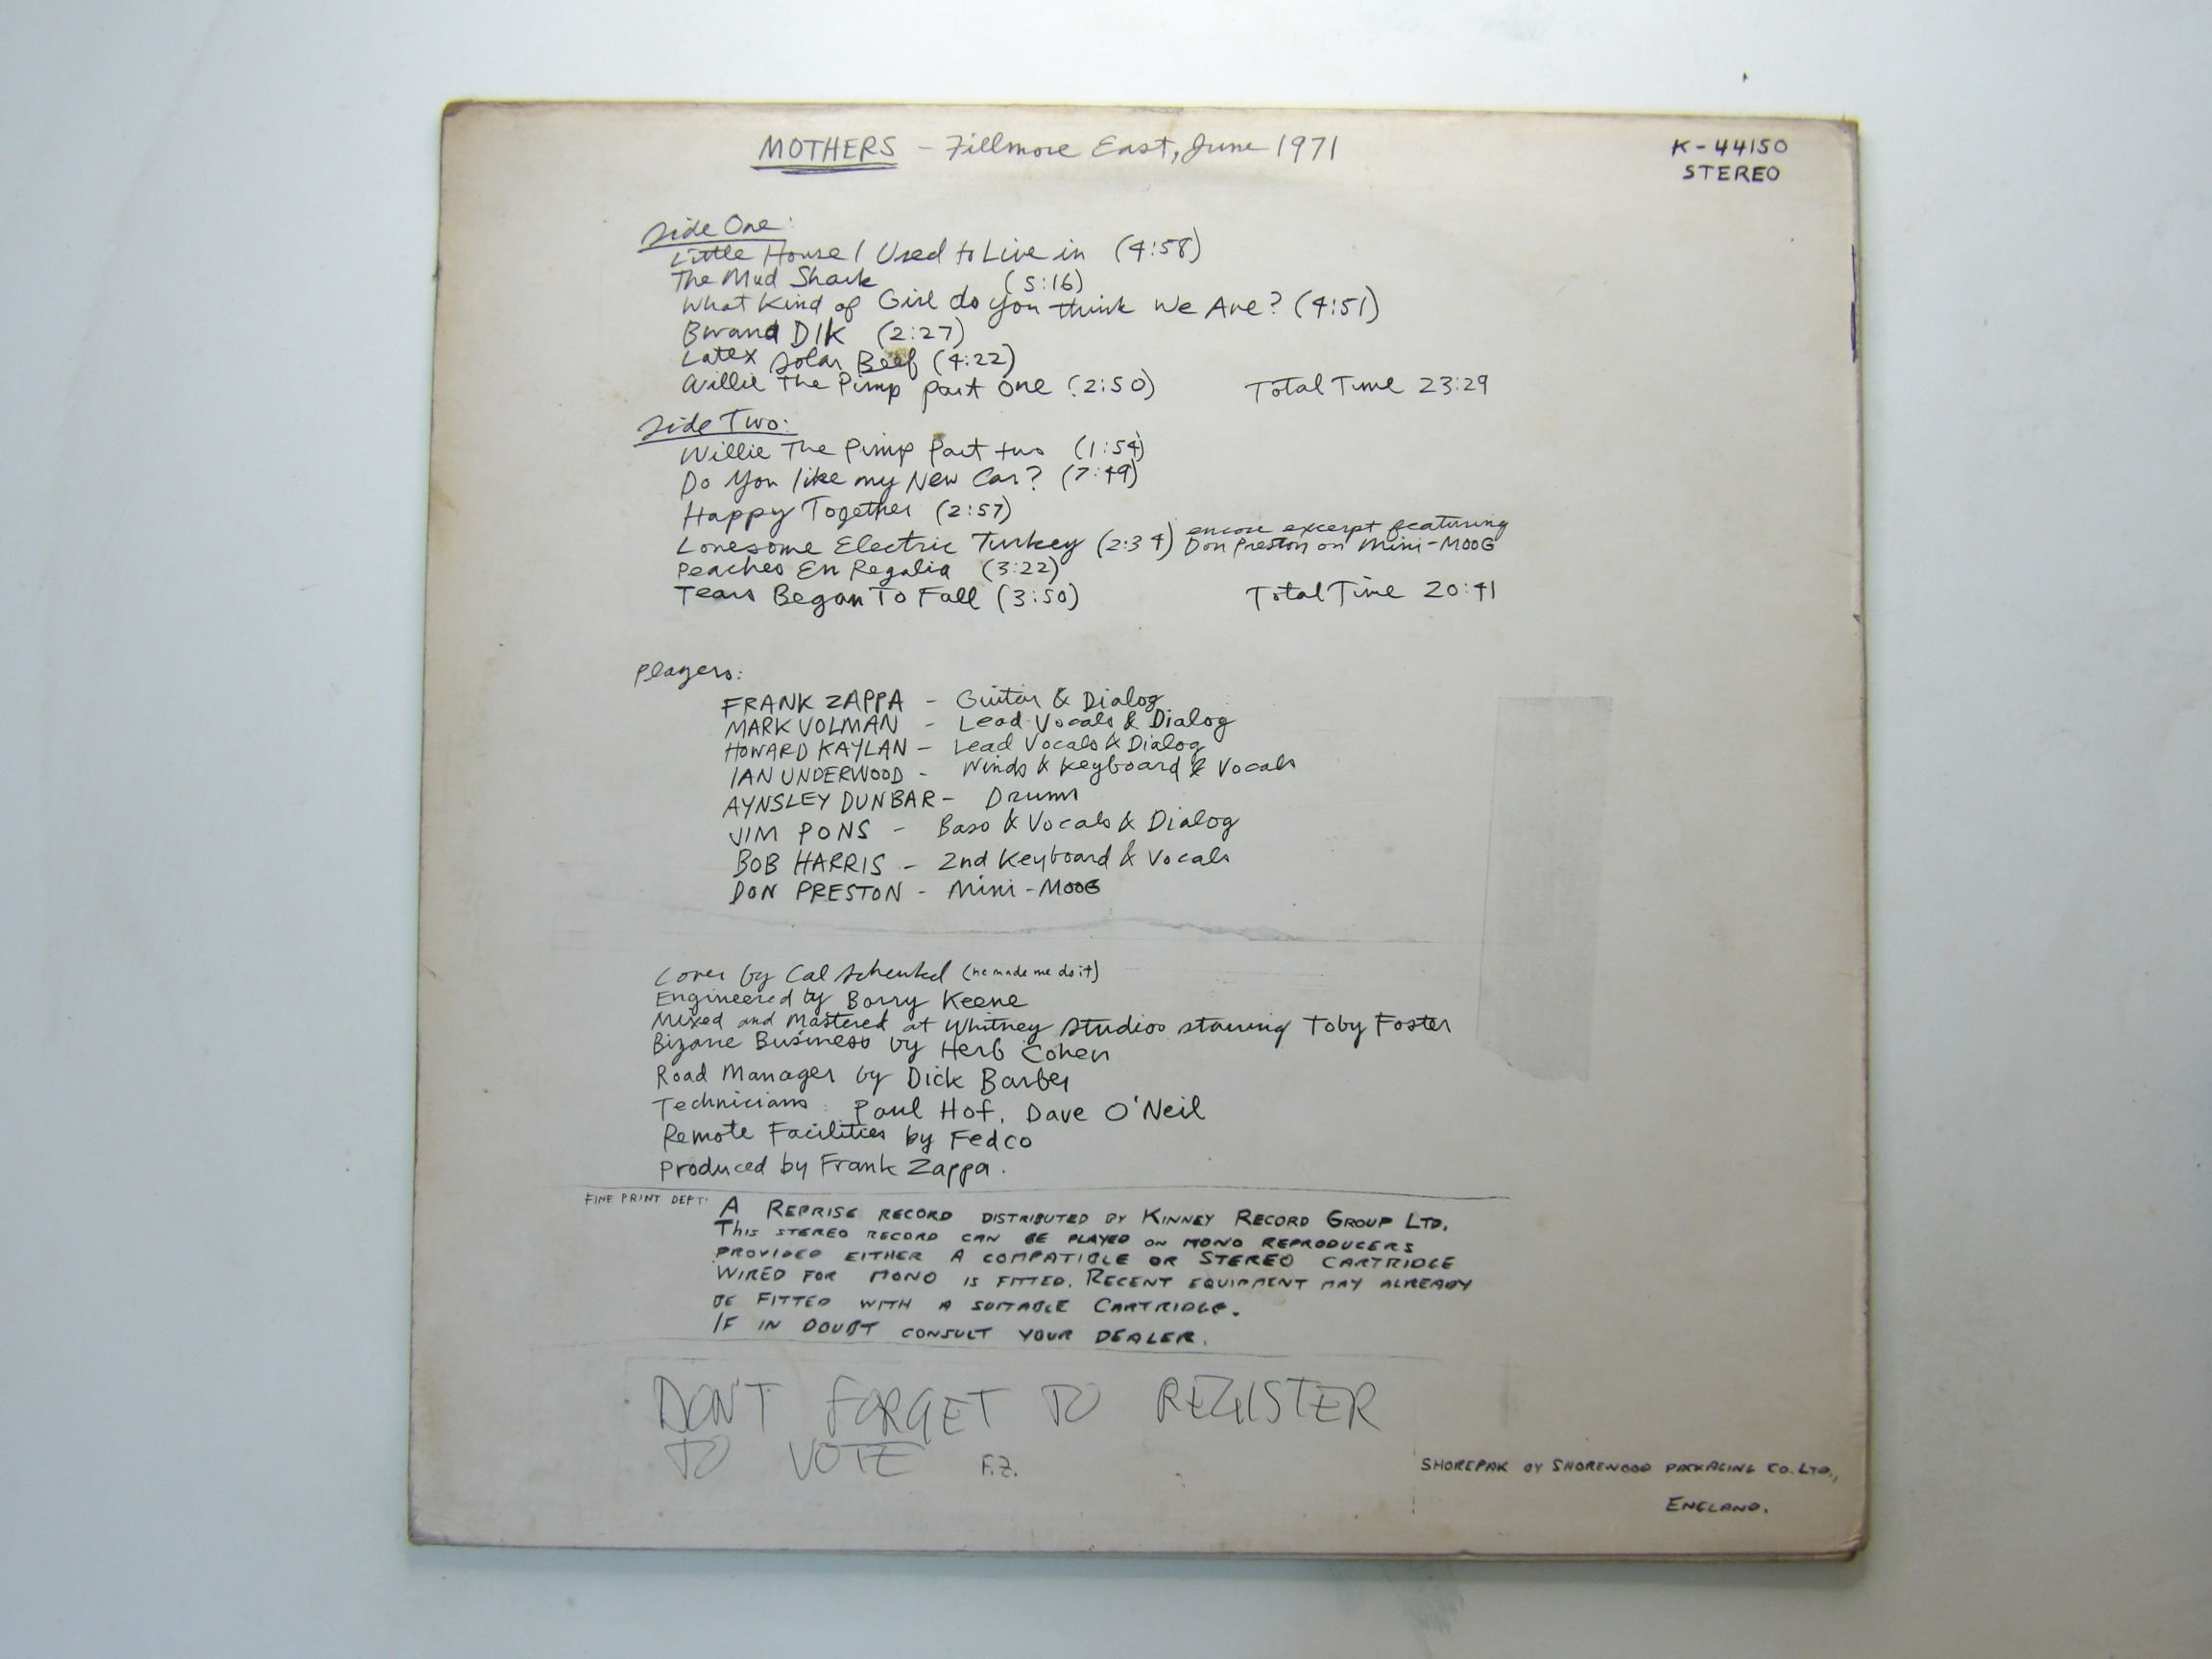 MOTHERS - Fillmore East, June 1971
K-44150
STEREO
Side One:
Little House I Used to Live in (4:58)
The Mud Shark (5:16)
What Kind of Girl do you think We Are? (4:51)
Bwana DIK (2:27)
Latex Solar Beef (4:22)
Willie The Pimp part One (2:50) Total Time 23:29
Side Two:
Willie The Pimp Part two (1:54)
Do You like my New Car? (7:49)
Happy Together (2:57)
Lonesome Electric Turkey (2:34) encore excerpt featuring
Don Preston on Mini-MOOG
Peaches En Regalia (3:22)
Tears Began To Fall (3:50) Total Time 20:41
Players:
FRANK ZAPPA - Guitar & Dialog
MARK VOLMAN - Lead Vocals & Dialog
HOWARD KAYLAN - Lead Vocals & Dialog
IAN UNDERWOOD - Winds & Keyboard & Vocals
AYNSLEY DUNBAR - Drums
JIM PONS - Bass & Vocals & Dialog
BOB HARRIS - 2nd Keyboard & Vocals
DON PRESTON - Mini-MOOG
Cover by Cal Schenkel (he made me do it)
Engineered by Barry Keene
Mixed and Mastered at Whitney Studios starring Toby Foster
Bizarre Business by Herb Cohen
Road Manager by Dick Barber
Technicians: Paul Hof, Dave O'Neil
Remote Facilities by Fedco
Produced by Frank Zappa.
FINE PRINT DEPT: A REPRISE RECORD DISTRIBUTED BY KINNEY RECORD GROUP LTD.
THIS STEREO RECORD CAN BE PLAYED ON MONO REPRODUCERS
PROVIDED EITHER A COMPATIBLE OR STEREO CARTRIDGE
WIRED FOR MONO IS FITTED. RECENT EQUIPMENT MAY ALREADY
BE FITTED WITH A SUITABLE CARTRIDGE.
IF IN DOUBT CONSULT YOUR DEALER.
DON'T FORGET TO REGISTER
TO VOTE F.Z.
SHOREPAK BY SHOREWOOD PACKAGING CO. LTD.,
ENGLAND.